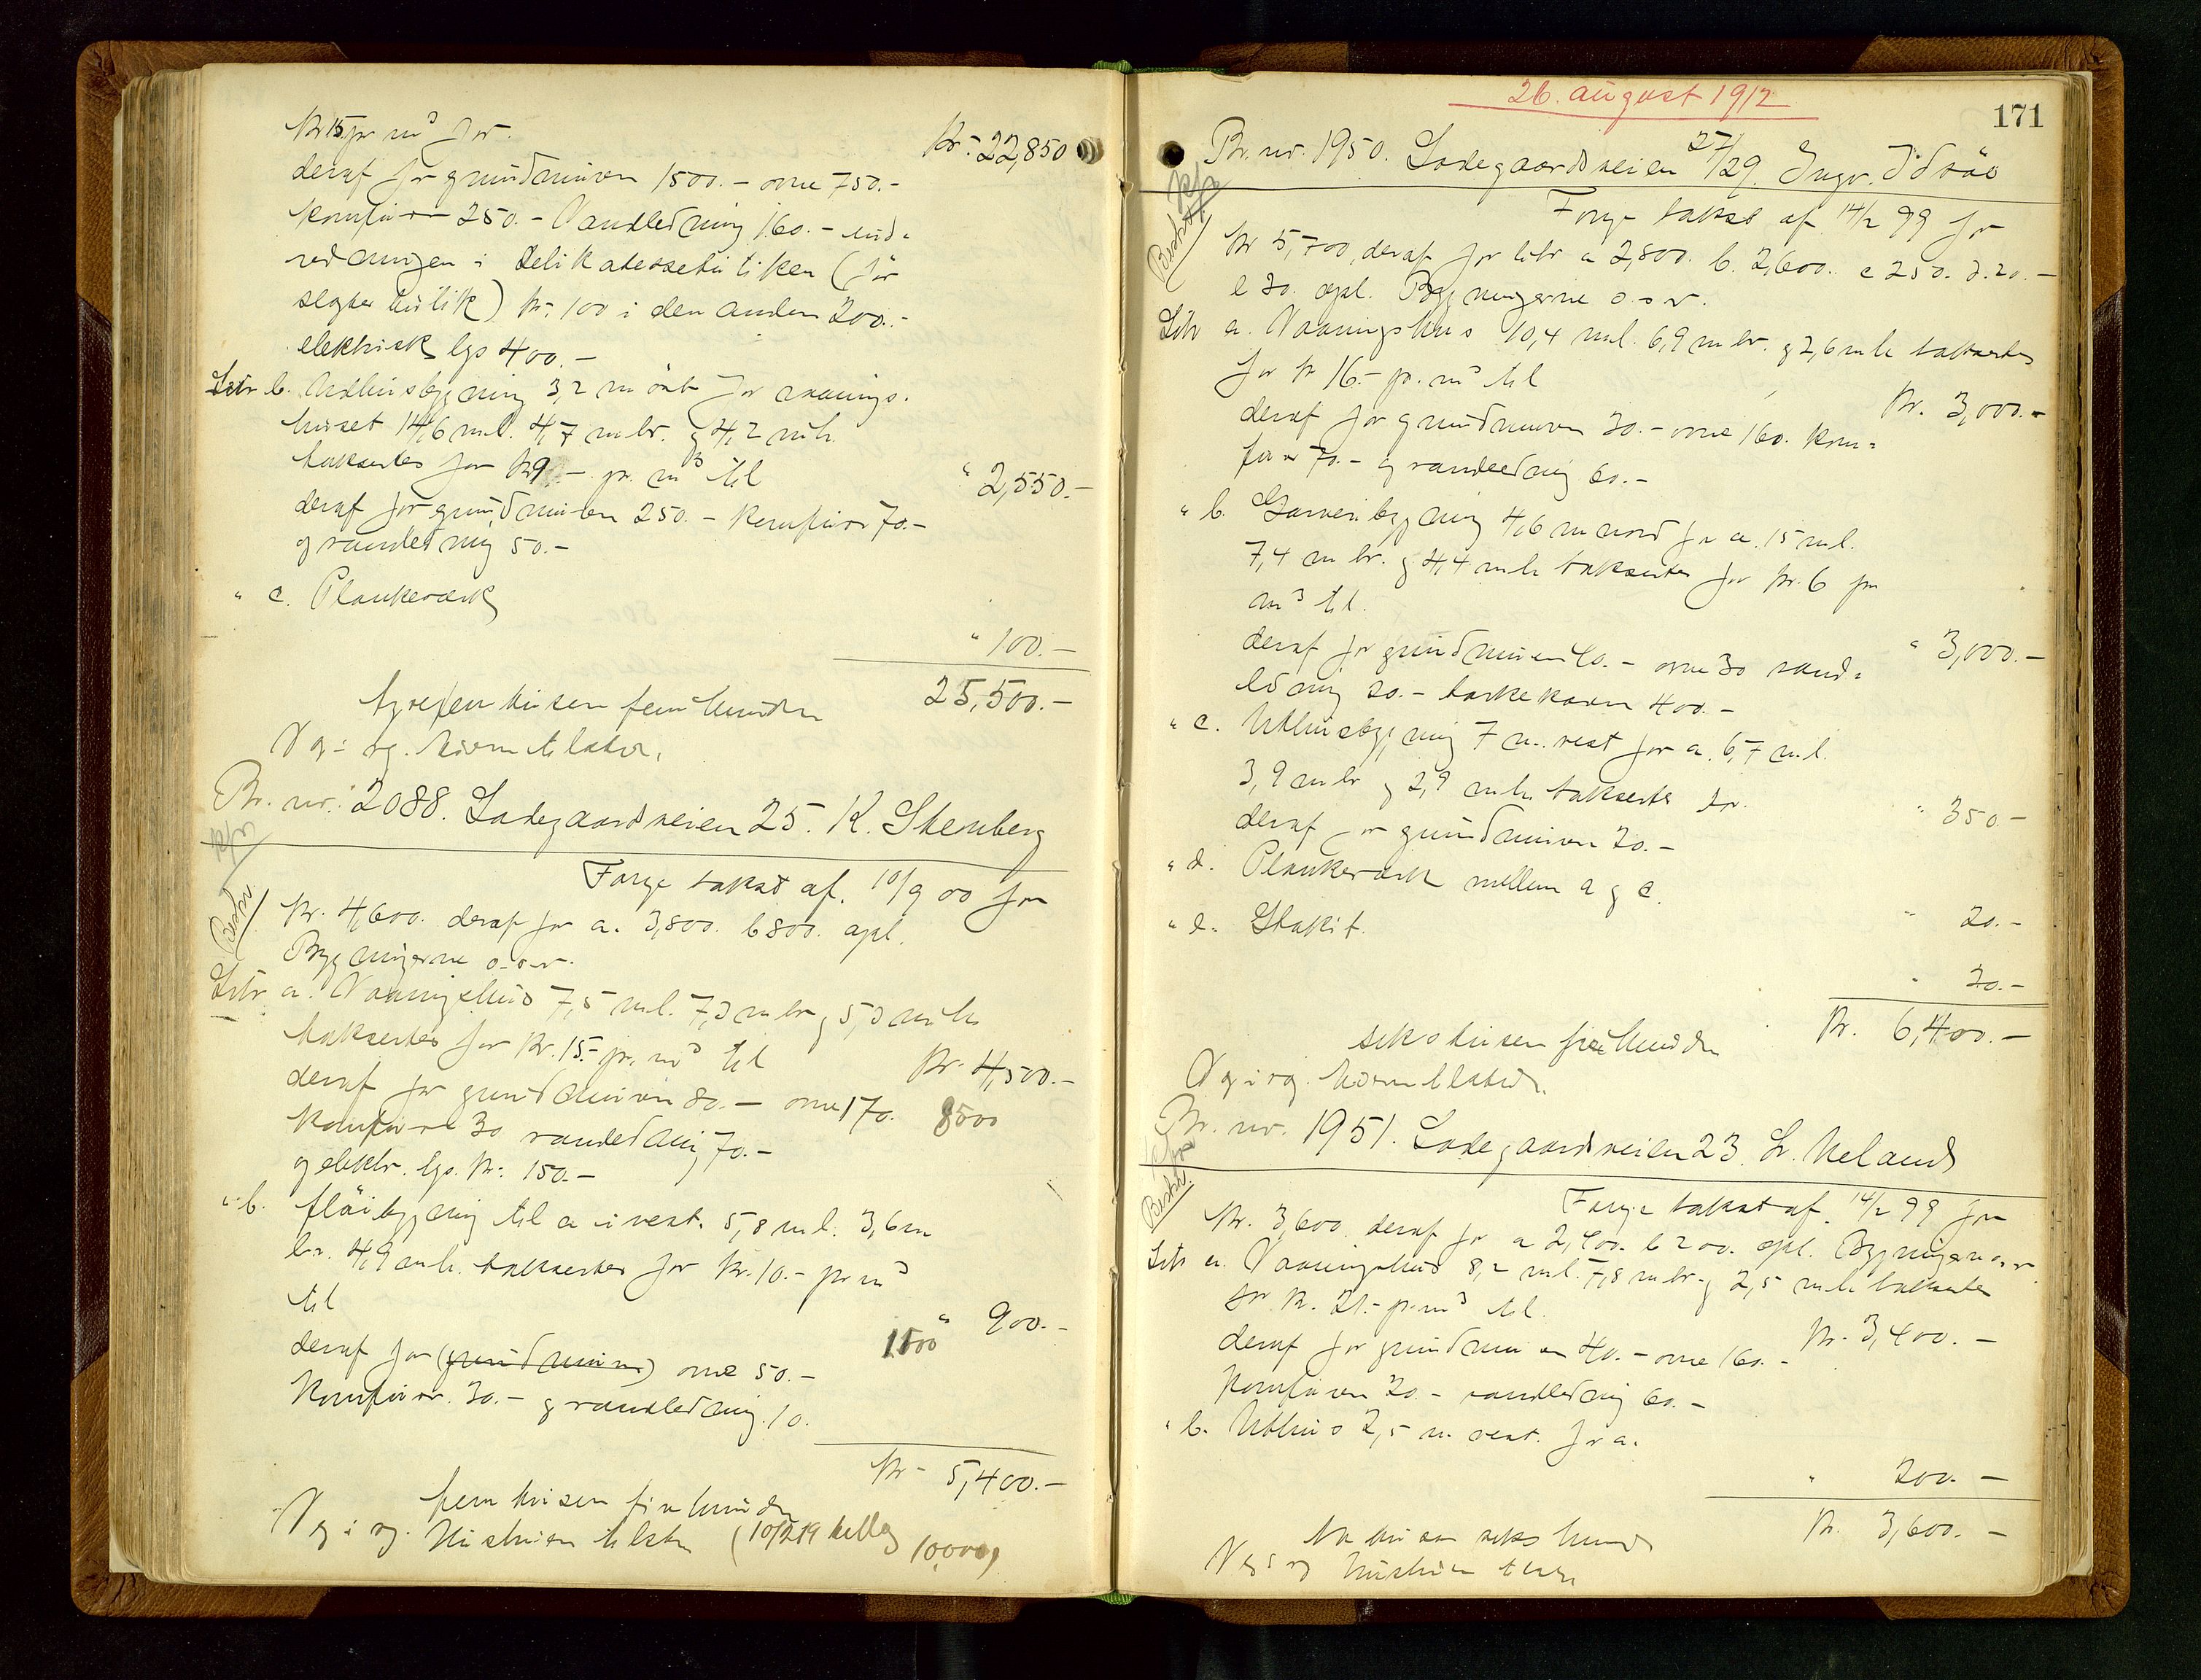 kr 15 pr m³ for
Kr. 22,850
deraf for grundmuren 1500.- ovne 750.-
komfurer 250.- Vandledning 160.- ind-
redningen i delikatessebutiken (før
slagterbutik) kr. 100 i den anden 200.-
elektrisk lys 400.-
Litr b. Udhusbygning 3,2 m øst for vaanings-
huset 14,6 m l. 4,7 m br. og 4,2 m h.
takseres for kr 9.- pr. m³ til
" 2,550.-
deraf for grundmuren 250.- komfurer 70.-
og vandledning 50.-
" c. Plankeværk
" 100.-
25,500.-
tyvefem tusen fem hundre
V og i rg.
Br. nr. 2088. Ladegaardsveien 25. K. Stenberg
Forrige takst af. 10/9 00 for
Beskr
kr. 4,600. deraf for a. 3,800. b 800. opl.
Bygningerne o.s.v.
Litr a. Vaaningshus 7,5 m l. 7,3 m br. og 5,3 m h.
takseres for kr. 15.- pr. m³ til
Kr. 4,500.-
deraf for grundmuren 80.- ovne 170.
8500
komfurer 30 vandledning 70.-
og elektr. lys. kr. 150.-
" b. fløibygning til a i vest. 5,8 m l. 3,6 m
br. 4,9 m h. takseres for kr. 10.- pr m³
til
" 900.-
1500
deraf for (grundmuren) ovne 50.-
Komfurer. 30.- og vandledning. 10.
Kr. 5,400.-
fem tusen fire hundre
V og i rg. (10/2 19 tillæg 10,000)
26. august 1912
171
Br. nr. 1950. Ladegaardsveien 27/29. Ingv. Idsøe
Forrige takst af 14/2 99 for
Beskr
kr 5,700, deraf for litr a 2,800. b. 2,600. c 250. d. 20.-
e 30. opl. Bygningerne o.s.v.
Litr a. Vaaningshus 10,4 m l. 6,9 m br. og 2,6 m h takseres
for kr 16.- pr. m³ til
Kr. 3,000.-
deraf for grundmuren 30.- ovne 160. kom-
fur 70.- og vandledning 60.-
" b. Garveribygning 4,6 m nord for a. 15 m l.
7,4 m br. og 4,4 m h takseres for kr. 6 pr
m³ til.
" 3,000.-
deraf for grundmuren 40.- ovne 30 vand-
ledning 20.- barkekarene 400.-
" c. Uthusbygning 7 m. vest for a. 6,7 m l.
3,9 m br og 2,9 m h. takseres for.
" 350.-
deraf for grundmuren 30.-
" d. Plankeværk mellem a og c.
" 20.-
" e. Stakit.
" 30.-
Kr. 6,400.-
seks tusen fire hundre
V og i rg.
Br. nr. 1951. Ladegaardsveien 23. L. Ueland
Beskr
Forrige takst af. 14/2 99 for
kr. 3,600. deraf for a 3,400. b 200. opl. Bygningerne o.s.v.
Litr a. Vaaningshus 8,2 m l. 7,8 m br. og 2,5 m h takseres
for kr. 21.- pr m³ til.
Kr. 3,400.-
deraf for grundmuren 40.- ovne 160.-
Komfuren 30.- vandledning 60.-
" b. Uthus 2,5 m. vest. for a.
" 200.-
Kr. 3,600.-
tre tusen seks hundre
V og i rg